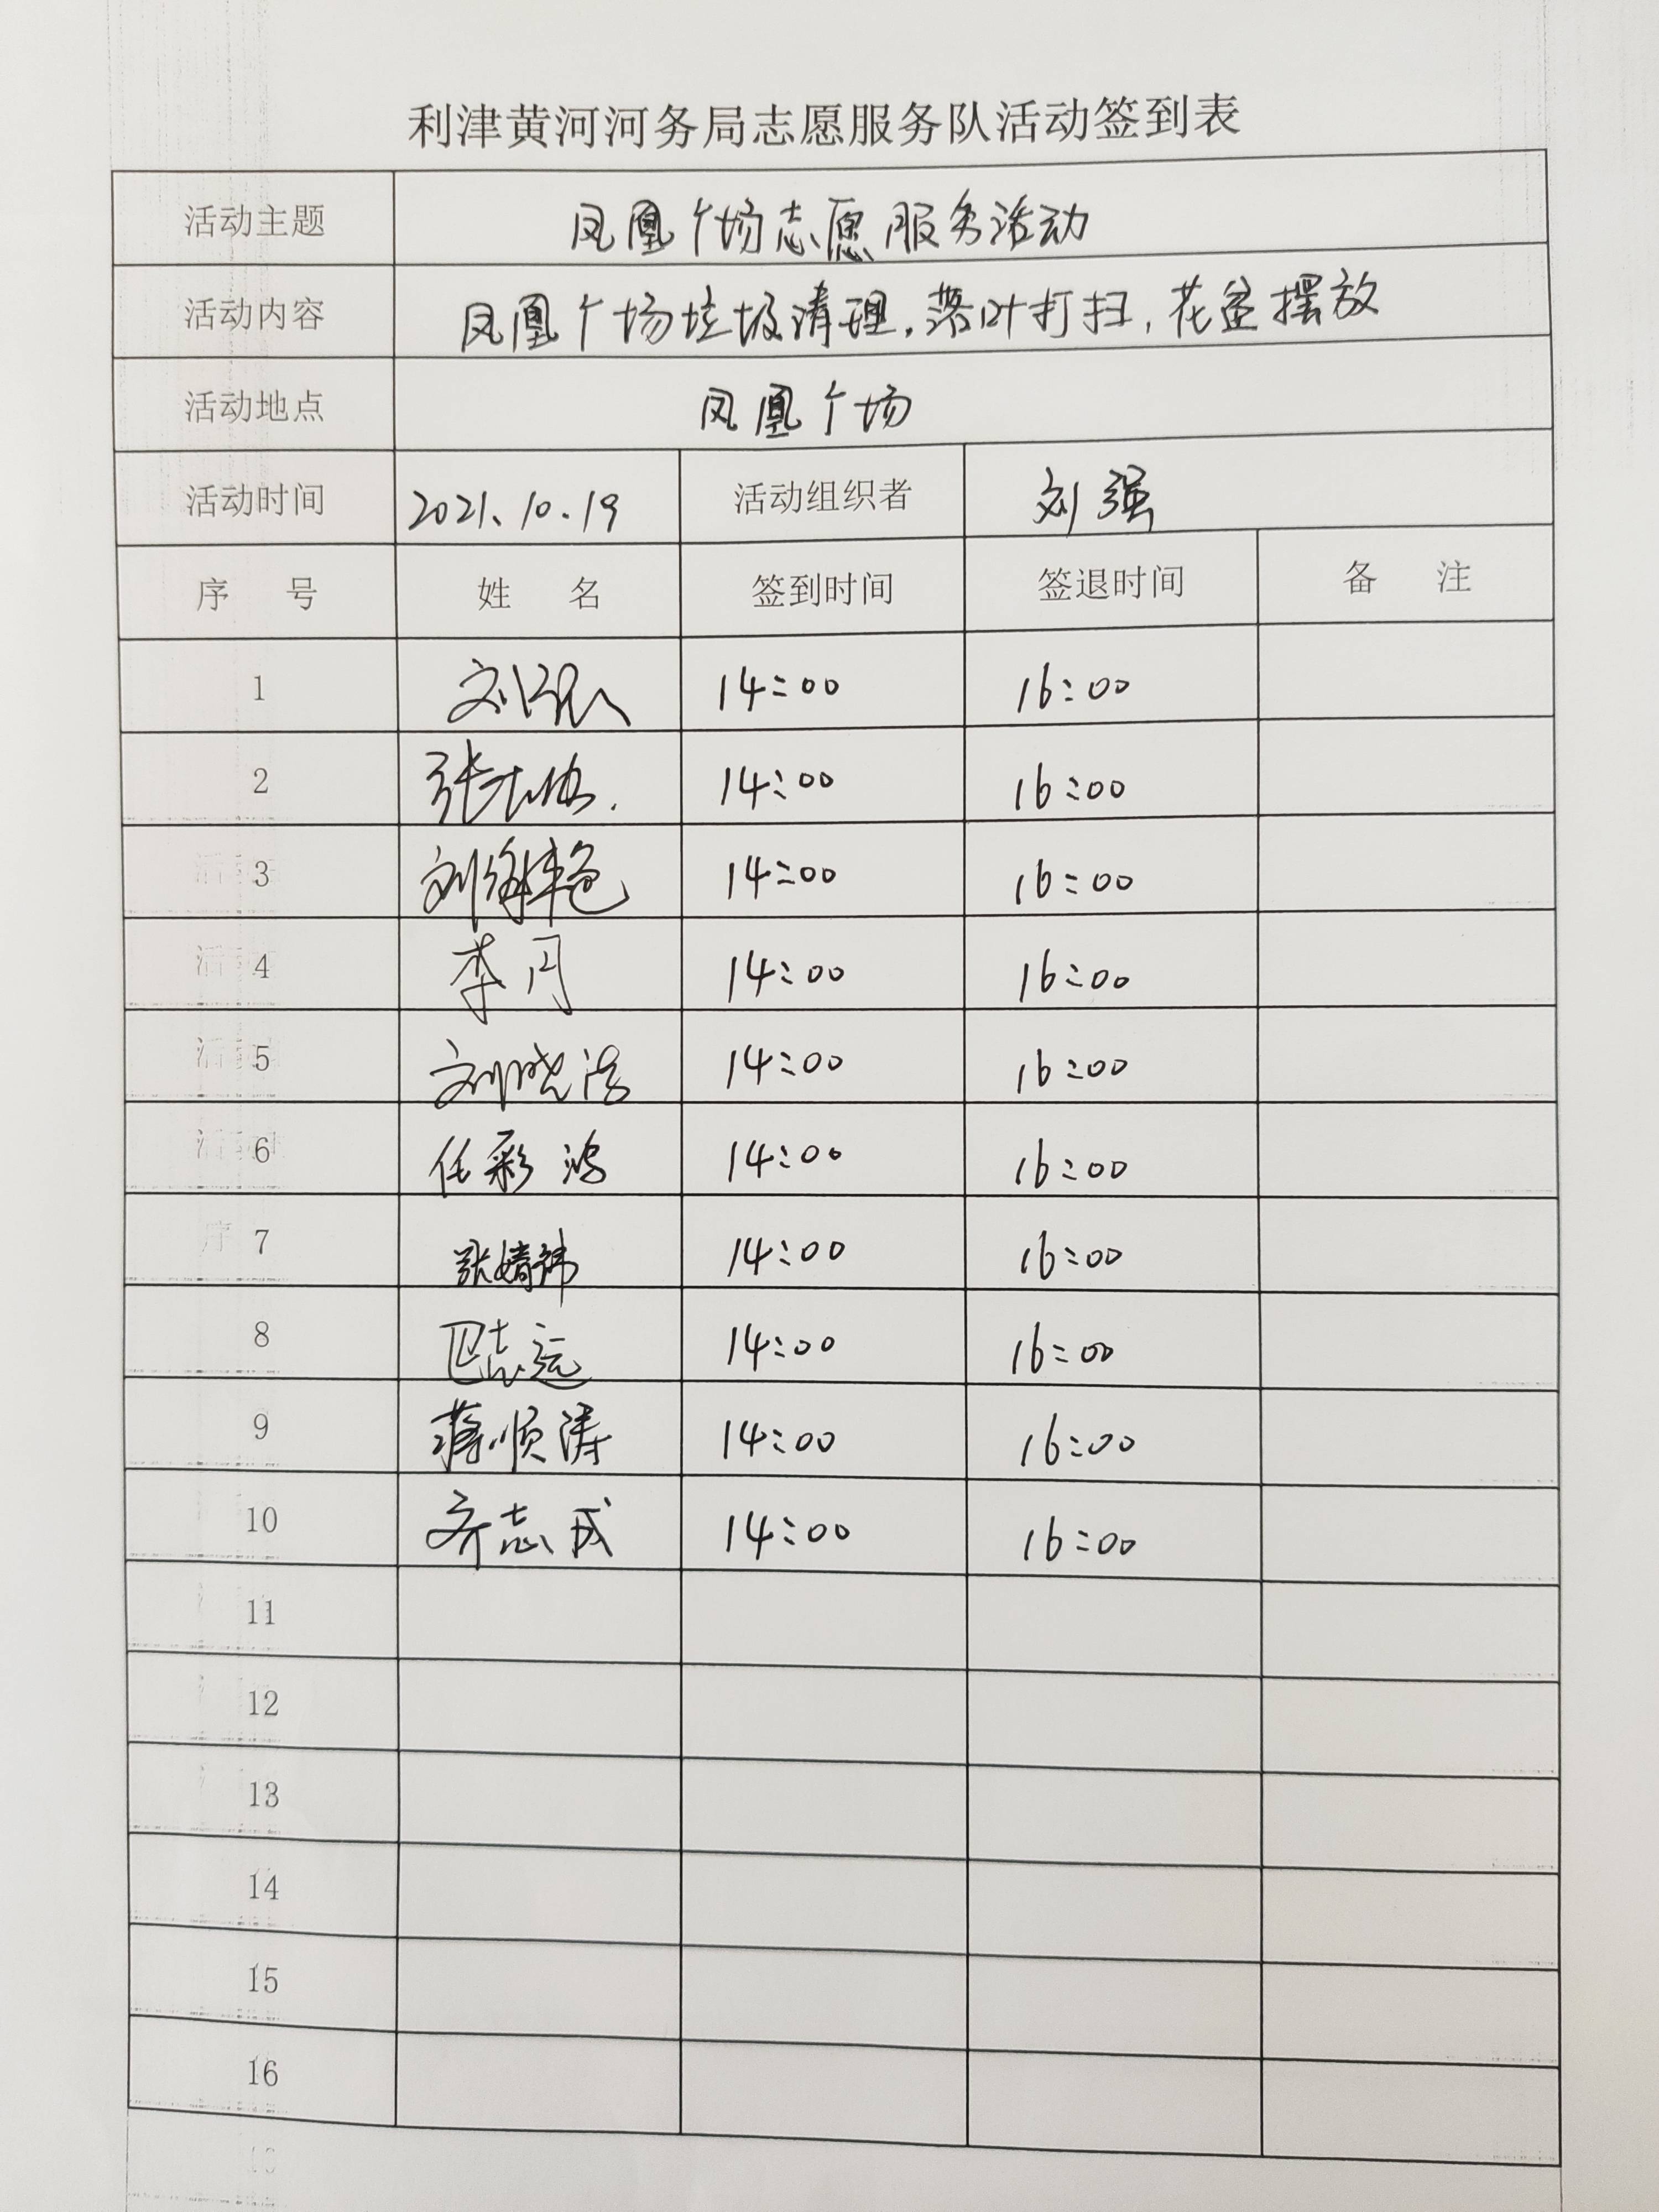 利津黄河河务局志愿服务队活动签到表
活动主题 凤凰广场志愿服务活动
活动内容 凤凰广场垃圾清理,落叶打扫,花盆摆放
活动地点 凤凰广场
活动时间 2021.10.19 活动组织者 刘强
序号 姓名 签到时间 签退时间 备注
1 刘强 14:00 16:00
2 张 14:00 16:00
3 刘 14:00 16:00
4 李月 14:00 16:00
5 刘晓 14:00 16:00
6 任彩鸿 14:00 16:00
7 张婧祎 14:00 16:00
8 巴志远 14:00 16:00
9 蒋顺涛 14:00 16:00
10 齐志成 14:00 16:00
11
12
13
14
15
16